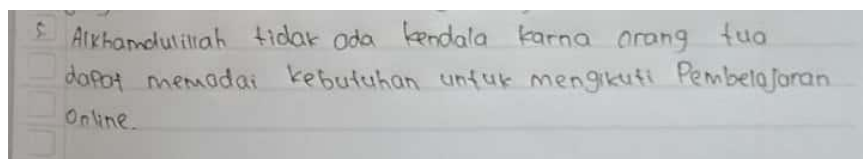 5. Alkhamdulillah tidak ada kendala karna orang tua
dapat memadai kebutuhan untuk mengikuti Pembelajaran
Online.